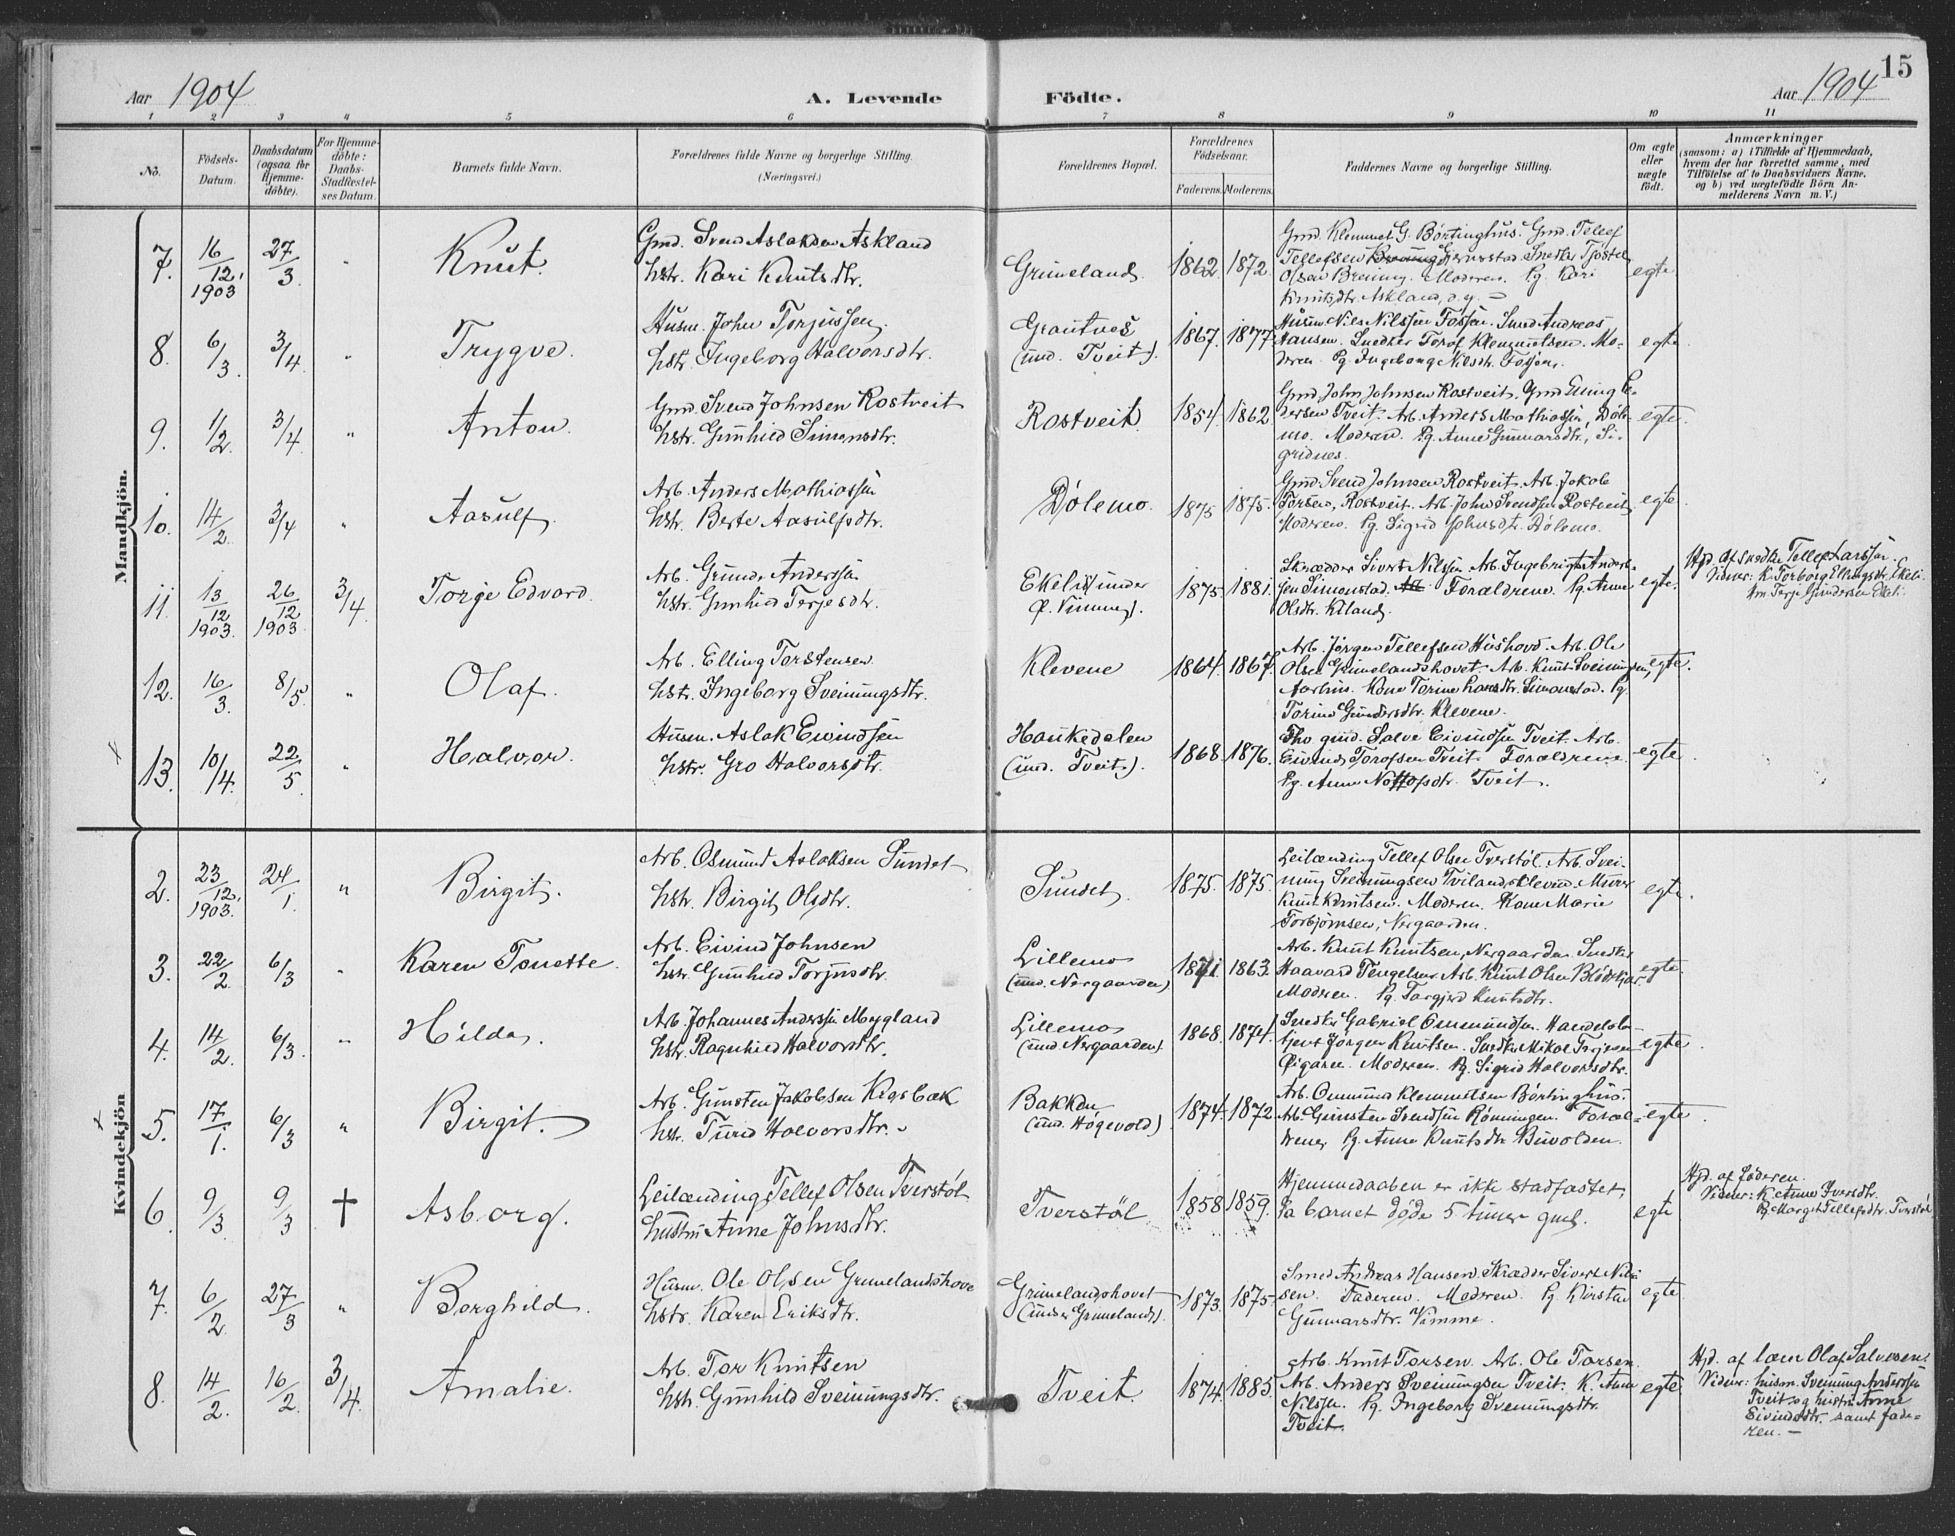 15
Aar 1904
A. Levende
Födte.
Aar 1904
1 2 3 4 5 6 7 8 9 10 11
No.
Födsels-
Datum.
Daabsdatum
(ogsaa for
Hjemme-
döbte).
For Hjemme-
döbte:
Daabs-
Stadfæstel-
ses Datum.
Barnets fulde Navn.
Forældrenes fulde Navne og borgerlige Stilling.
(Næringsvei.)
Forældrenes Bopæl.
Forældrenes
Födselsaar.
Faderens. Moderens.
Faddernes Navne og borgerlige Stilling.
Om ægte
eller
uægte
födt.
Anmærkninger
(saasom: a) i Tilfælde af Hjemmedaab,
hvem der har forrettet samme, med
Tilföielse af to Daabsvidners Navne.
og b) ved uægtefödte Börn An-
melderens Navn m. V.)
Mandkjön.
7. 16/12 1903 27/3 " Knut.
Gmd. Svend Aslaksen Askland
hstr. Kari Knutsdtr.
Grimeland. 1862 1872.
Gmd. Klemmet G. Börtinghus. Gmd. Tellef
Tellefsen Snedker Tjöstel
Olsen Breiung. Moderen. Pg. Kari
Knutsdtr. Askland, a.g.
egte
8. 6/3 3/4 " Trygve.
Husm. John Torjussen.
hstr. Ingeborg Halvorsdtr.
Grautnes
(und. Tveit).
1867. 1877
Husm. Nils Nilssen Fossen. Smed Andreas
Hansen. Snedker Torof Klemmetsen. Mo-
deren. Pg. Ingeborg Nilsdtr. Fossen.
egte
9. 1/2 3/4 " Anton.
Gmd. Svend Johnsen Rostveit
hstr. Gunhild Simonsdtr.
Rostveit 1854. 1862.
Gmd. John Johnsen Rostveit. Gmd Elling Pe-
dersen Tveit. Arb. Anders Mathiassen, Döle-
mo. Moderen. Pg. Anne Gunnarsdtr., Si-
gridnes.
egte.
10. 14/2 3/4 " Aasulf.
Arb. Anders Mathiassen
hstr. Berte Aasulfsdtr.
Dølemo. 1875 1875.
Gmd. Svend Johnsen Rostveit. Arb. Jakob
Torsen, Rostveit. Arb. John Svendsen Rostveit
Moderen. Pg. Sigrid Johnsdtr. Dölemo.
egte
11. 13/12 1903. 26/12 1903. 3/4 Torje Edvard.
Arb. Gunder Anderssen
hstr. Gunhild Terjesdtr.
Ekelid (under
Ø. Vimme).
1875. 1881.
Skrædder Sivert Nilssen Arb. Ingebrigt Anders-
sen Simonstad. Forældrene. Pg. Anne
Olsdtr. Kiland.
egte.
Hjd. af snedker Tellef Larssen.
Vidner: K. Torborg Ellingsdtr. Ekeli.
Um. Terje Gundersen Ekeli.
12. 16/3 8/5 " Olaf.
Arb. Elling Torstensen
hstr. Ingeborg Sveinungsdtr.
Klevene 1864. 1867.
Arb. Jörgen Tellefsen Hushovd. Arb. Ole
Olsen Grimelandshovet. Arb. Knut Sveinungsen,
Aarhus. Kone Torine Larsdtr. Simonstad. Pg.
Torine Gundersdtr. Klevene.
egte.
13. 10/4. 22/5 " Halvor.
Husm. Aslak Eivindsen
hstr. Gro Halvorsdtr.
Haukedalen
(und. Tveit).
1868. 1876.
Fho gmd. Salve Eivindsen Tveit. Arb.
Eivind Torofsen Tveit. Forældrene.
Pg. Anne Nottofsdtr. Tveit.
egte
Kvindekjön
2. 23/12 1903. 24/1 " Birgit.
Arb. Osmund Aslaksen Sundet
hstr. Birgit Olsdtr.
Sundet. 1875. 1875.
Leilænding Tellef Olsen Tverstöl. Arb. Svei-
nung Sveinungsen Tveilandskleven. Murer
Knut Knutsen. Moderen. Kone Marie
Torbjörnsen, Nergaarden.
egte.
3. 22/2 6/3 " Karen Tonette.
Arb. Eivind Johnsen
hstr. Gunhild Torjusdtr.
Lillemo
(und. Nergaarden)
1871. 1863.
Arb. Knut Knutsen, Nergaarden. Snedker
Haavard Tengelsen. Arb. Knut Olsen Blödekjær.
Moderen. Pg. Torgjerd Knutsdtr.
egte.
4. 14/2 6/3. " Hilda.
Arb. Johannes Anderssen Mygland
hstr. Ragnhild Halvorsdtr.
Lillemo
(und Nergaarden).
1868. 1874.
Snedker Gabriel Ommundsen. Handels-
tjent Jörgen Knutsen. Snedker Mikal Terjesen
Öigaren. Moderen. Pg. Sigrid Halvorsdtr.
egte.
5. 17/1. 6/3 " Birgit.
Arb. Gunsten Jakobsen Kigsbæk
hstr. Turid Halvorsdtr.
Bakken
(und. Høgevold)
1874. 1872
Arb. Ommund Klemmetsen Börtinghus.
Arb. Gunsten Svendsen Rönningen. Foræl-
drene. Pg. Anne Knutsdtr Buvolden.
egte
6. 9/3 9/3 † Asborg.
Leilænding Tellef Olsen Tverstöl.
hustru Anne Johnsdtr.
Tverstöl 1858 1859.
Hjemmedaaben er ikke stadfæstet,
da barnet döde 5 timer gml.
egte
Hjd. af Faderen.
Vidner: K. Anne Iversdtr.
Pg. Margit Tellefsdtr. Tverstöl
7. 6/2 27/3 " Borghild.
Husm. Ole Olsen Grimelandshove
hstr. Karen Eriksdtr.
Grimelandshovet
(under Grimeland).
1873. 1875.
Smed Andreas Hansen. Skrædder Sivert Nils-
sen. Faderen. Moderen. Pg. Kirsten
Gunnarsdtr. Vimme.
egte
8. 14/2. 16/2. 3/4. Amalie.
Arb. Tor Knutsen
hstr. Gunhild Sveinungsdtr.
Tveit. 1874. 1885.
Arb. Knut Torsen. Arb. Ole Torsen.
Arb. Anders Sveinungsen Tveit. K. Anne
Nilssen. Pg. Ingeborg Sveinungsdtr.
Tveit.
egte
Hjd. af lærer Olaf Salvesen.
Vidner: husm. Sveinung Anderssen
Tveit og hustru Anne
Eivindsdtr. samt fade-
ren. –